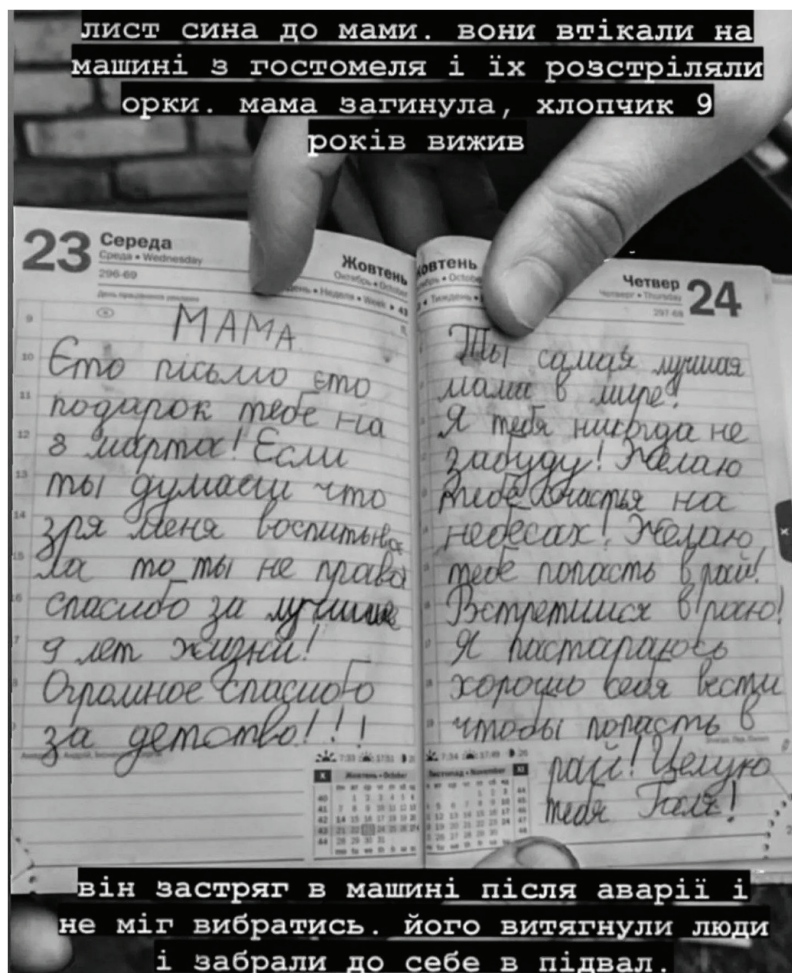 лист сина до мами. вони втікали на
машині з гостомеля і їх розстріляли
орки. мама загинула, хлопчик 9
років вижив
23 Середа
Среда • Wednesday
296-69
Жовтень
Октябрь • October
Неделя • Week • 43
МАМА
Єто письмо єто
подарок тебе на
8 марта! Єсли
ты думаеш что
зря меня воспитыва
ла то ты не права
спасибо за лучшие
9 лет жизни!
Огромное спасибо
за детство!!!
7:33 17:51
X Жовтень • October
Четвер 24
Четверг • Thursday
297-68
Жовтень
October
Тиждень
Ты самая лучшая
мама в мире!
Я тебя никогда не
забуду! Желаю
тебе счастья на
небесах! Желаю
тебе попасть в рай!
Встретимися в раю!
Я пастараюсь
хорошо себя вести
чтобы попасть в
рай! Целую
тебя Галя!
7:34 17:49 26
Листопад • November XI
X
він застряг в машині після аварії і
не міг вибратись. його витягнули люди
і забрали до себе в підвал.